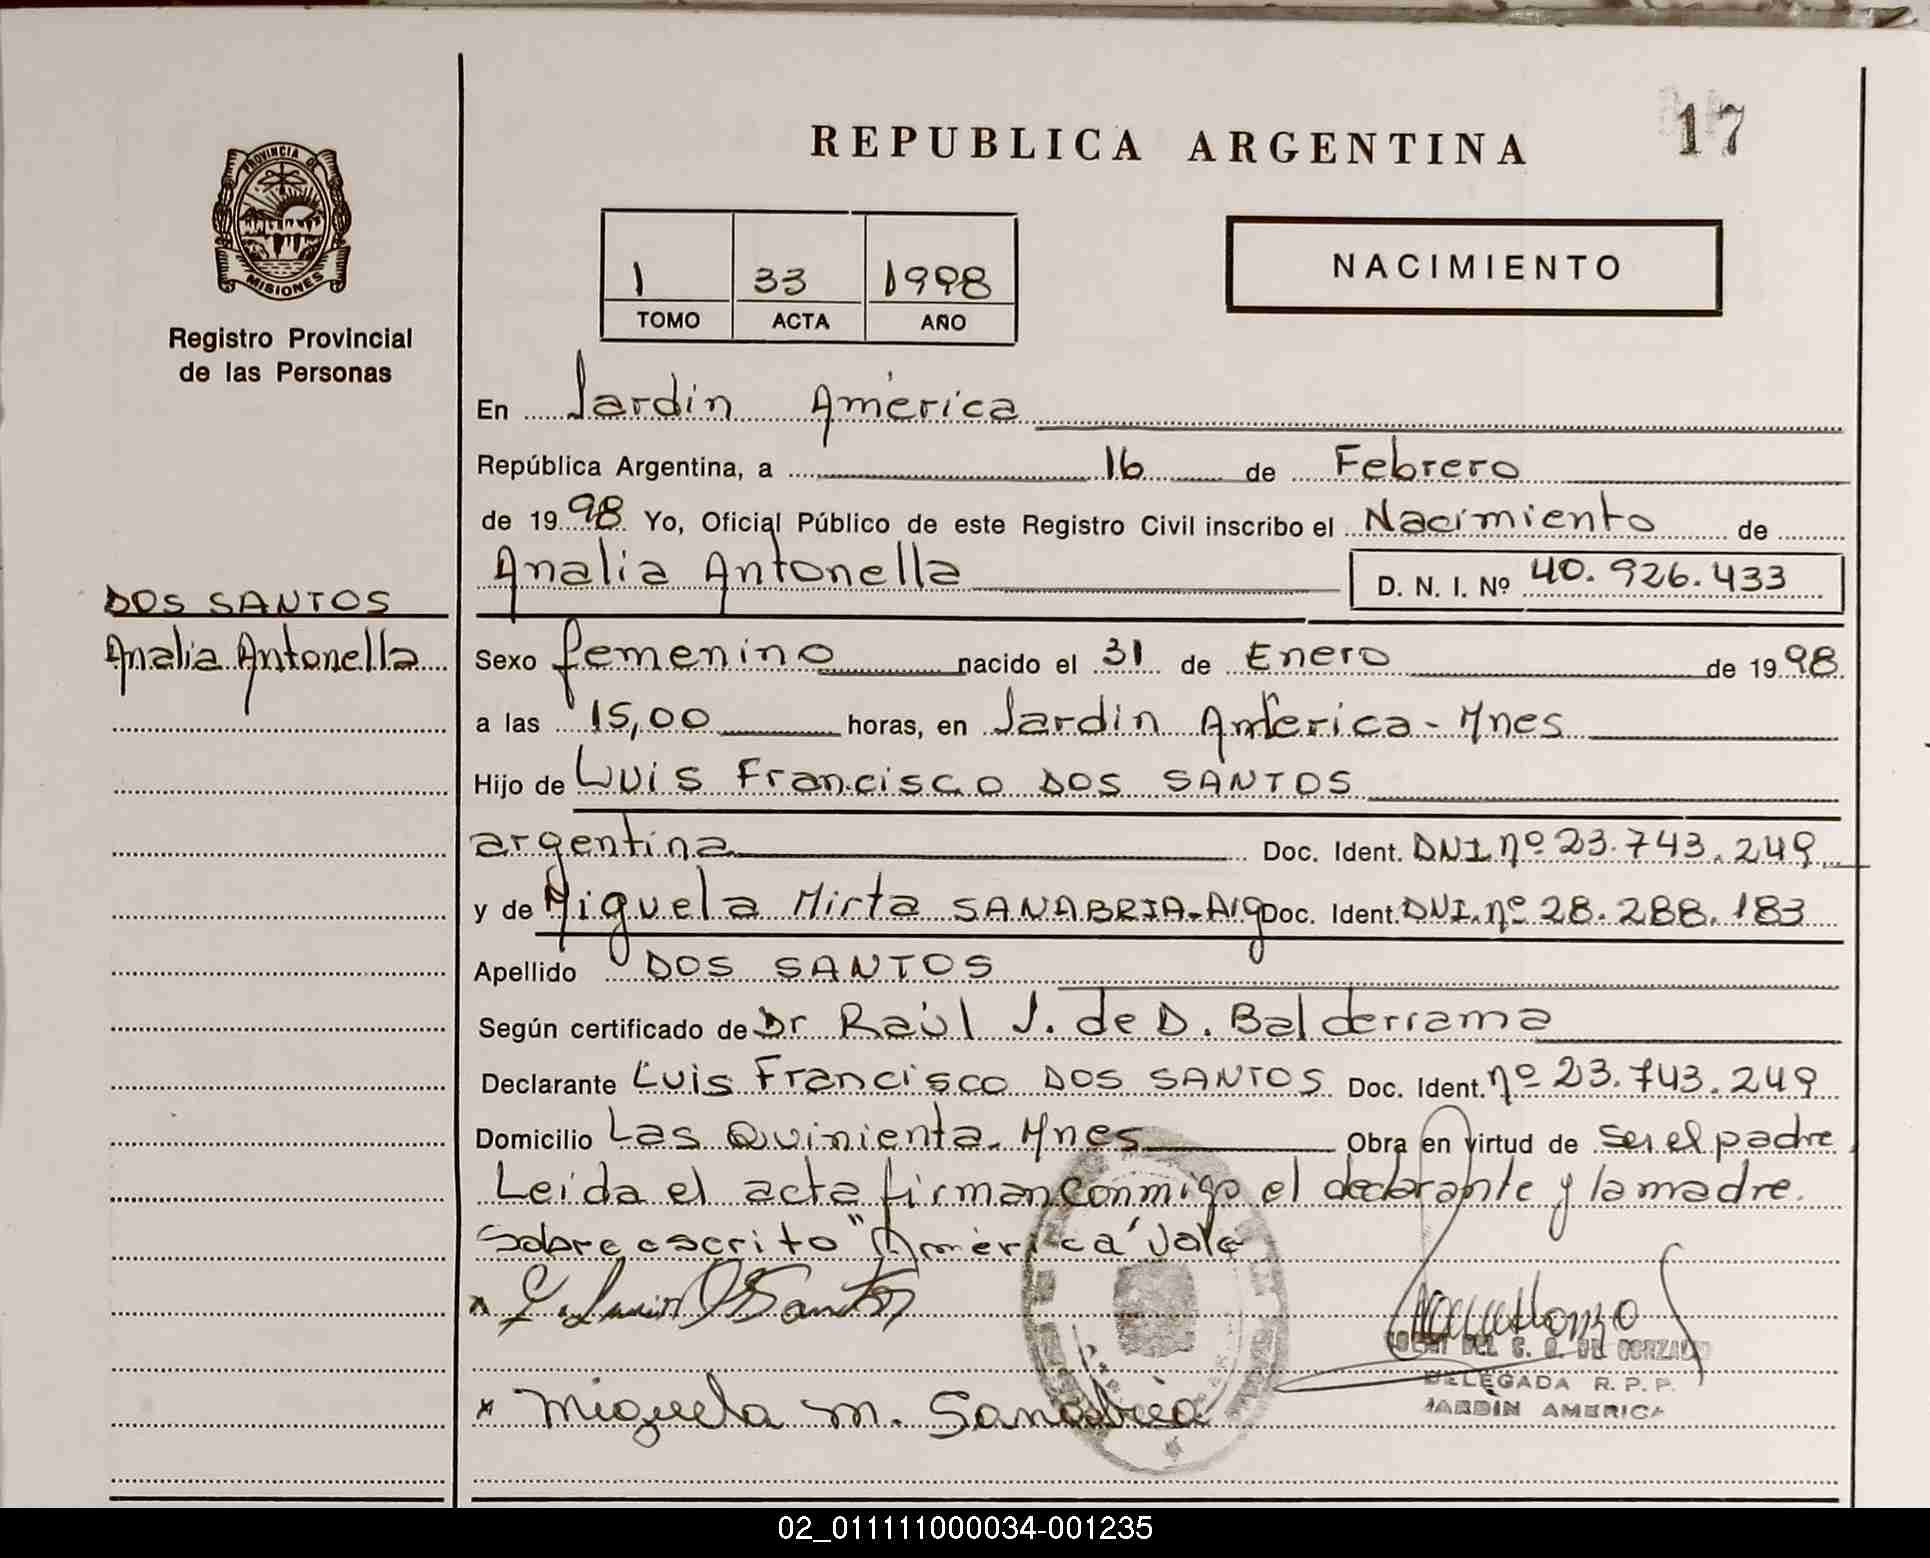 17
REPUBLICA ARGENTINA
PROVINCIA DE
MISIONES
Registro Provincial
de las Personas
1 33 1998
TOMO ACTA AÑO
NACIMIENTO
En Jardín América
República Argentina, a 16 de Febrero
de 1998 Yo, Oficial Público de este Registro Civil inscribo el Nacimiento de
Analia Antonella D. N. I. Nº 40.926.433
DOS SANTOS
Analia Antonella
Sexo femenino nacido el 31 de Enero de 1998
a las 15,00 horas, en Jardín América - Mnes
Hijo de Luis Francisco DOS SANTOS
argentina Doc. Ident. DNI nº 23.743.249
y de Miguela Mirta SANABRIA-Arg Doc. Ident. DNI. nº 28.288.183
Apellido DOS SANTOS
Según certificado de Dr Raúl J. de D. Balderrama
Declarante Luis Francisco DOS SANTOS Doc. Ident. nº 23.743.249
Domicilio Las Quinienta. Mnes Obra en virtud de ser el padre
Leída el acta firman conmigo el declarante y la madre.
Sobre escrito "América" Vale
x
DEL C. DE GONZALEZ
DELEGADA R.P.P.
JARDIN AMERICA
x Miguela m. Sanabria
02_011111000034-001235